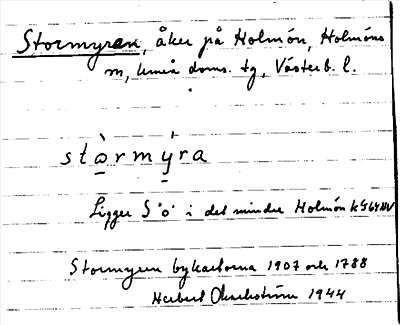 Stormyran, åker på Holmön, Holmöns
sn, Umeå doms. tg, Västerb. l.
stòrmýra
Ligger S "o" i det mindre Holmön
Stormyren bykartorna 1907 och 1788
Herbert 1944